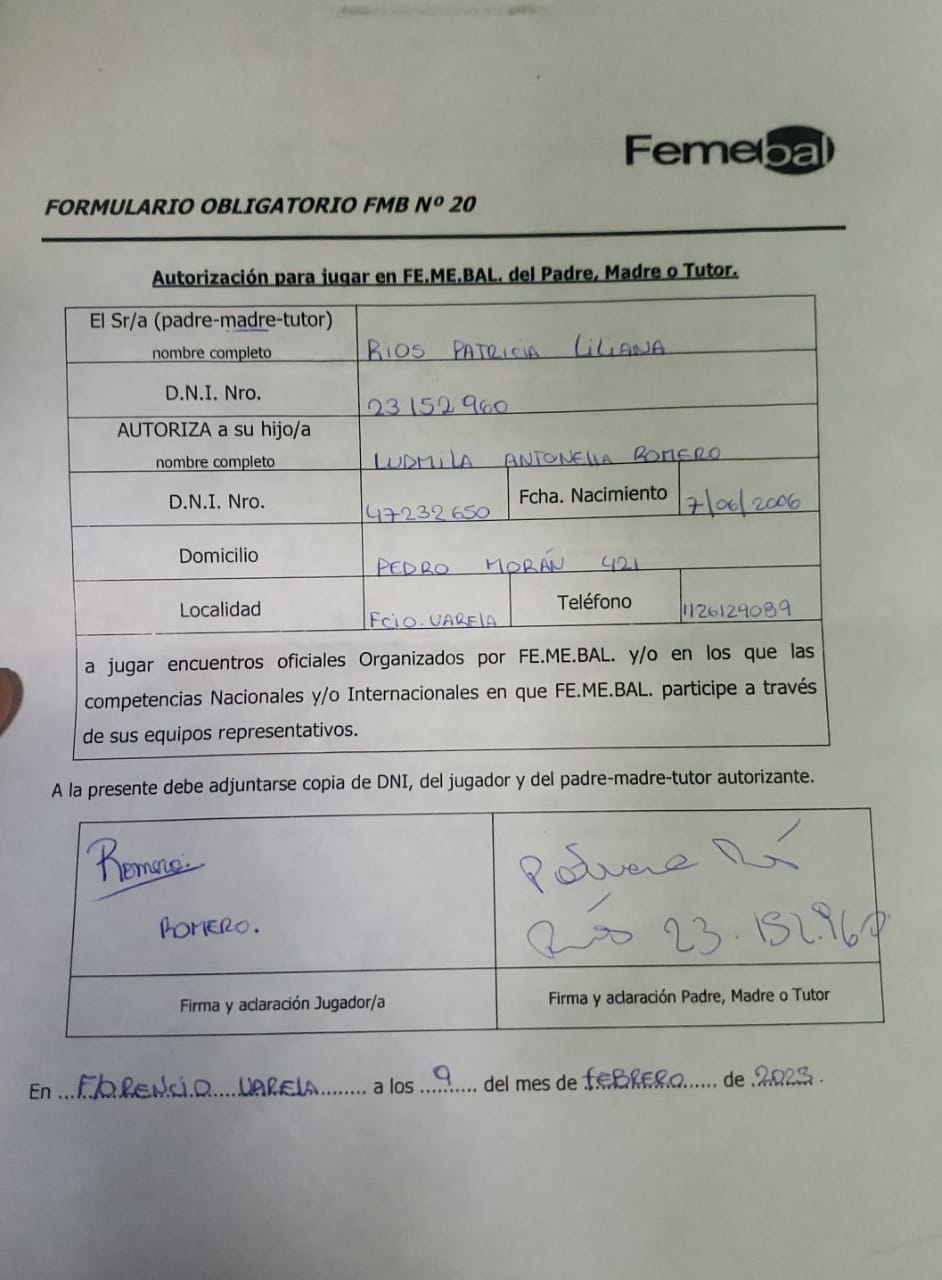 Femebal
FORMULARIO OBLIGATORIO FMB Nº 20
Autorización para jugar en FE.ME.BAL. del Padre, Madre o Tutor.
El Sr/a (padre-madre-tutor)
nombre completo
RIOS PATRICIA LILIANA
D.N.I. Nro.
23152960
AUTORIZA a su hijo/a
nombre completo
LUDMILA ANTONELLA ROMERO
D.N.I. Nro.
47232650
Fcha. Nacimiento
7/06/2006
Domicilio
PEDRO MORÁN 421
Localidad
Fcio. VARELA
Teléfono
1126129089
a jugar encuentros oficiales Organizados por FE.ME.BAL. y/o en los que las
competencias Nacionales y/o Internacionales en que FE.ME.BAL. participe a través
de sus equipos representativos.
A la presente debe adjuntarse copia de DNI, del jugador y del padre-madre-tutor autorizante.
Romero.
ROMERO.
Ríos 23.152.960
Firma y aclaración Jugador/a
Firma y aclaración Padre, Madre o Tutor
En ...FLORENCIO....VARELA........ a los ....9..... del mes de fEBRERO...... de .2023.